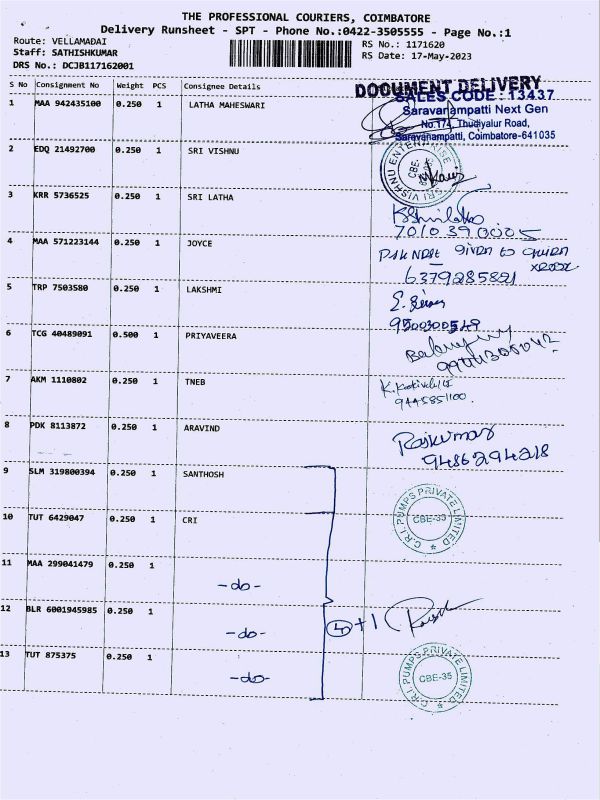 THE PROFESSIONAL COURIERS, COIMBATORE
Delivery Runsheet - SPT - Phone No.:0422-3505555 - Page No.:1
Route: VELLAMADAI
Staff: SATHISHKUMAR
DRS No.: DCJB117162001
RS No.: 1171620
RS Date: 17-May-2023
S No Consignment No Weight PCS Consignee Details
DOCUMENT DELIVERY
SALES CODE : 13437
Saravanampatti Next Gen
No.174, Thudiyalur Road,
Saravanampatti, Coimbatore-641035
1 MAA 942435100 0.250 1 LATHA MAHESWARI
2 EDQ 21492700 0.250 1 SRI VISHNU
SRI VISHNU ENTERPRISE
CBE-
3 KRR 5736525 0.250 1 SRI LATHA
7010390005
4 MAA 571223144 0.250 1 JOYCE
given to
xerox
6379285821
5 TRP 7503580 0.250 1 LAKSHMI
9500300549
6 TCG 40489091 0.500 1 PRIYAVEERA
7 AKM 1110802 0.250 1 TNEB
9445851100
8 PDK 8113872 0.250 1 ARAVIND
Rajkumar
9486294218
9 SLM 319800394 0.250 1 SANTHOSH
10 TUT 6429047 0.250 1 CRI
C.R.I. PUMPS PRIVATE LIMITED
CBE-35
11 MAA 299041479 0.250 1
-do-
12 BLR 6001945985 0.250 1
-do-
+1
13 TUT 875375 0.250 1
-do-
C.R.I. PUMPS PRIVATE LIMITED
CBE-35